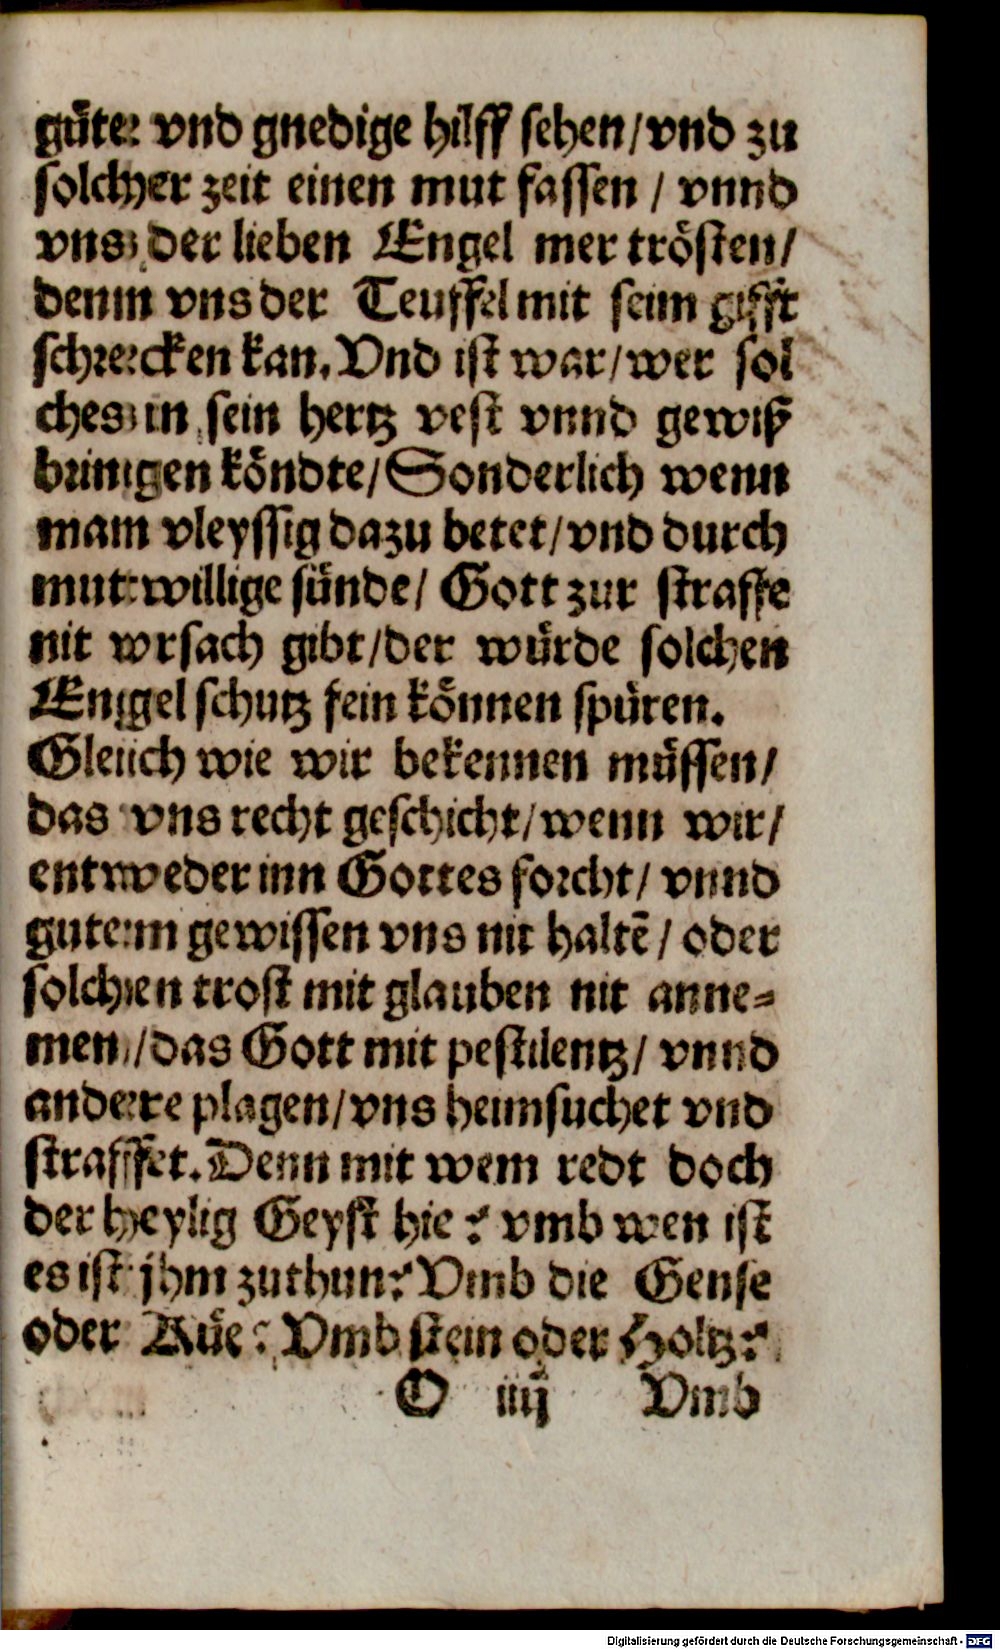 güte vnd gnedige hilff sehen/vnd zu
solcher zeit einen mut fassen / vnnd
vns der lieben Engel mer trösten/
denn vns der Teuffel mit seim gifft
schrecken kan. Vnd ist war/wer sol
ches in sein hertz vest vnnd gewiß
bringen köndte/Sonderlich wenn
man vleyssig dazu betet/vnd durch
mutwillige sünde/ Gott zur straffe
nit vrsach gibt/der würde solchen
Engel schutz fein können spüren.
Gleich wie wir bekennen müssen/
das vns recht geschicht/wenn wir/
entweder inn Gottes forcht/ vnnd
gutem gewissen vns nit haltē/ oder
solchen trost mit glauben nit anne=
men/das Gott mit pestilentz/ vnnd
andere plagen/vns heimsuchet vnd
straffet. Denn mit wem redt doch
der heylig Geyst hie? vmb wen ist
es ist jhm zuthun? Vmb die Gense
oder Küe? Vmb stein oder Holtz?
O iiij Vmb
Digitalisierung gefördert durch die Deutsche Forschungsgemeinschaft - DFG